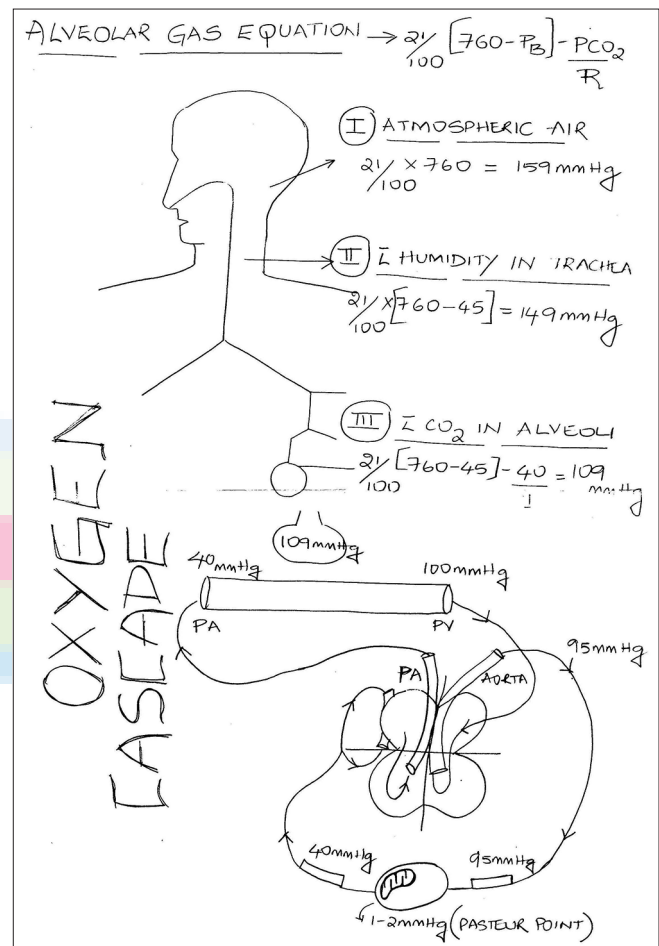 ALVEOLAR GAS EQUATION → 21/100 [760-PB] - PCO2/R
I ATMOSPHERIC AIR
21/100 × 760 = 159mmHg
II c̄ HUMIDITY IN TRACHEA
21/100 × [760-45] = 149mmHg
III c̄ CO2 IN ALVEOLI
21/100 [760-45] - 40/1 = 109 mmHg
109mmHg
OXYGEN
CASCADE
40mmHg
100mmHg
PA
PV
95mmHg
PA
AORTA
40mmHg
95mmHg
1-2mmHg (PASTEUR POINT)